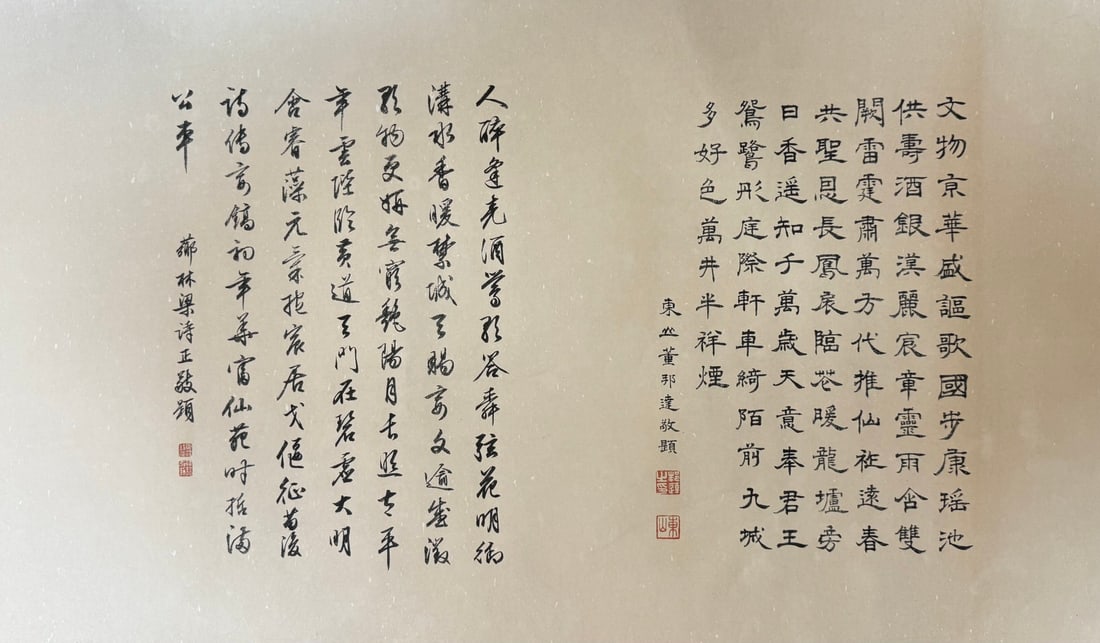 文物京華盛謳歌國步康瑤池
供壽酒銀漢麗宸章靈雨含雙
闕雷霆肅萬方代推仙祚遠春
共聖恩長鳳扆臨花暖龍壚旁
日香遙知千萬歲天意奉君王
鴛鷺彤庭際軒車綺陌前九城
多好色萬井半祥煙
東山董邦達敬題
東山
人醉逢堯酒鶯歌答舜弦花明御
溝水香暖禁城天賜宴文逾盛徵
歌物更妍無窮艷陽月長照太平
年雲陛臨黃道天門在碧虛大明
含睿藻元氣抱宸居戈偃征苗後
詩傳宴鎬初年華富仙苑時哲滿
公車
薌林梁詩正敬題